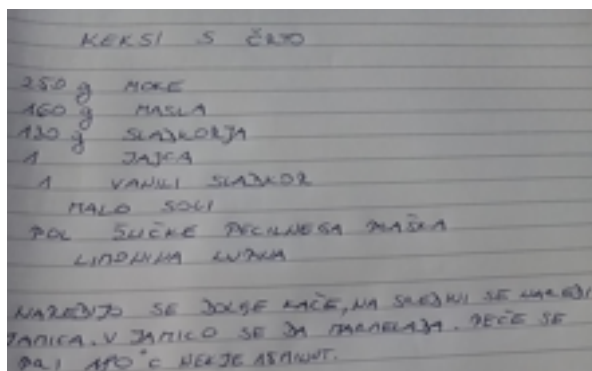 KEKSI S ČRTO
250 g MOKE
160 g MASLA
130 g SLADKORJA
1 JAJCA
1 VANILI SLADKOR
MALO SOLI
POL ŽLIČKE PECILNEGA PRAŠKA
LIMONINA LUPINA
NAREDIJO SE DOLGE KAČE, NA SREDINI SE NAREDI
JAMICA. V JAMICO SE DA MARMELADA. PEČE SE
PRI 180°C NEKJE 15 MINUT.